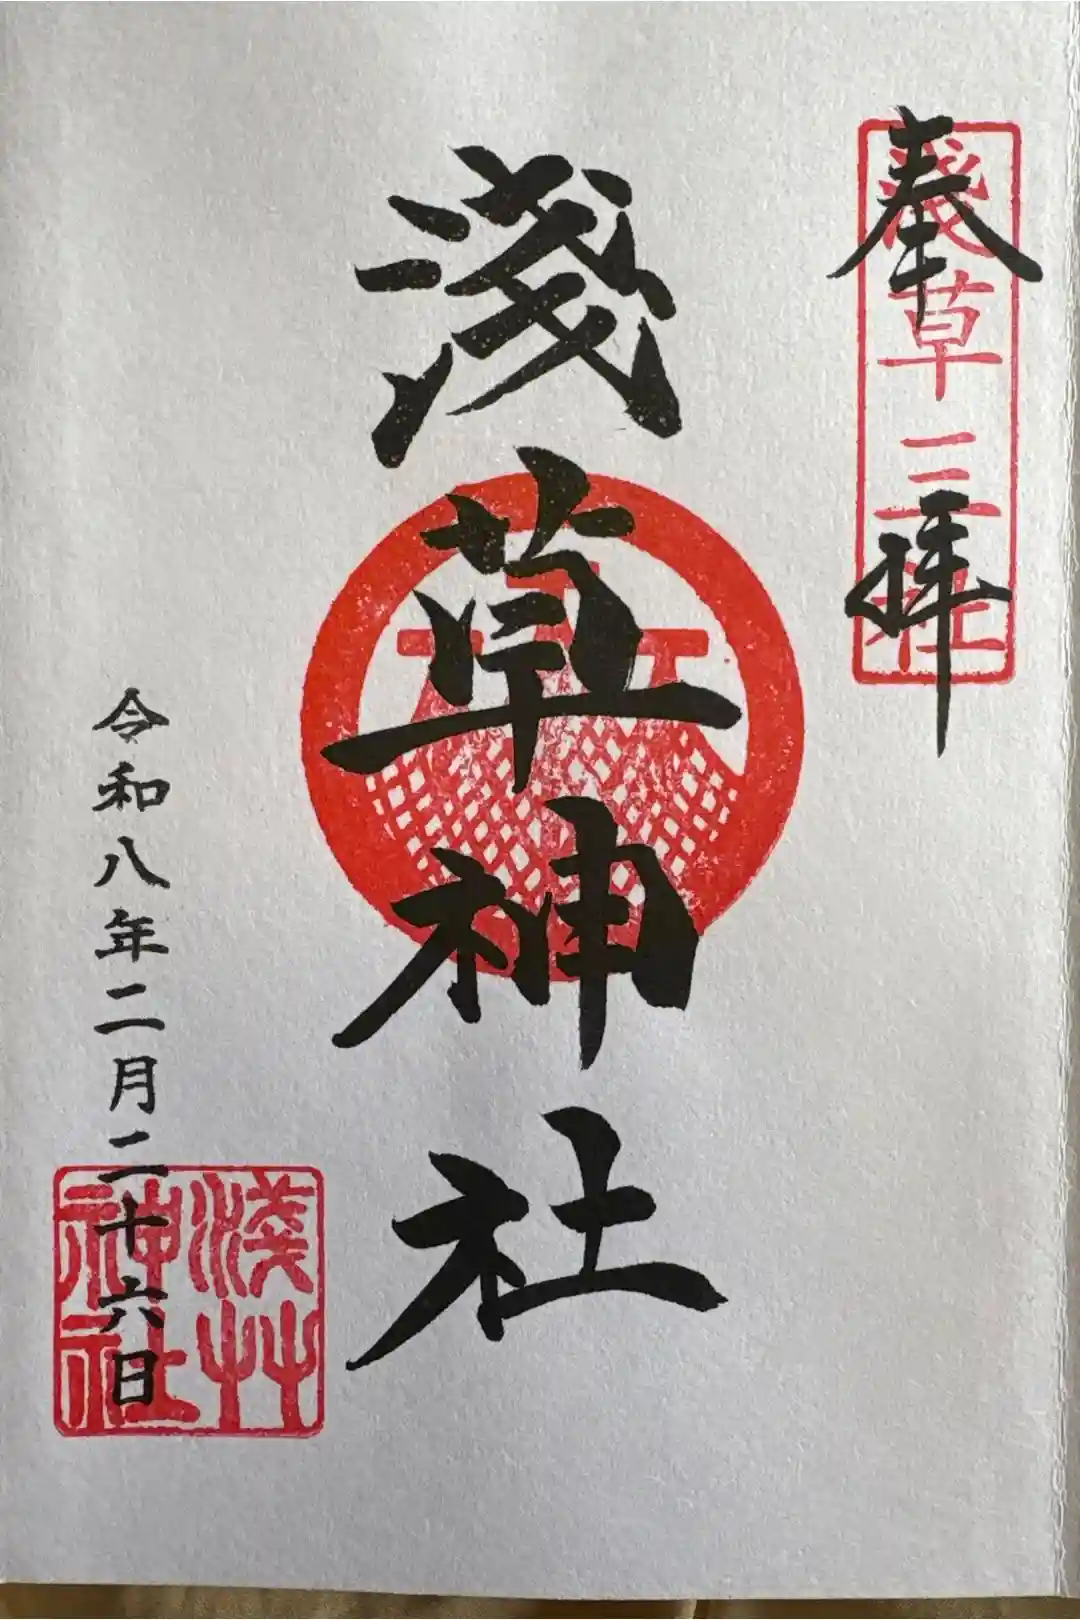 奉拝
淺草三社
淺草神社
令和八年二月二十六日
淺艸
神社